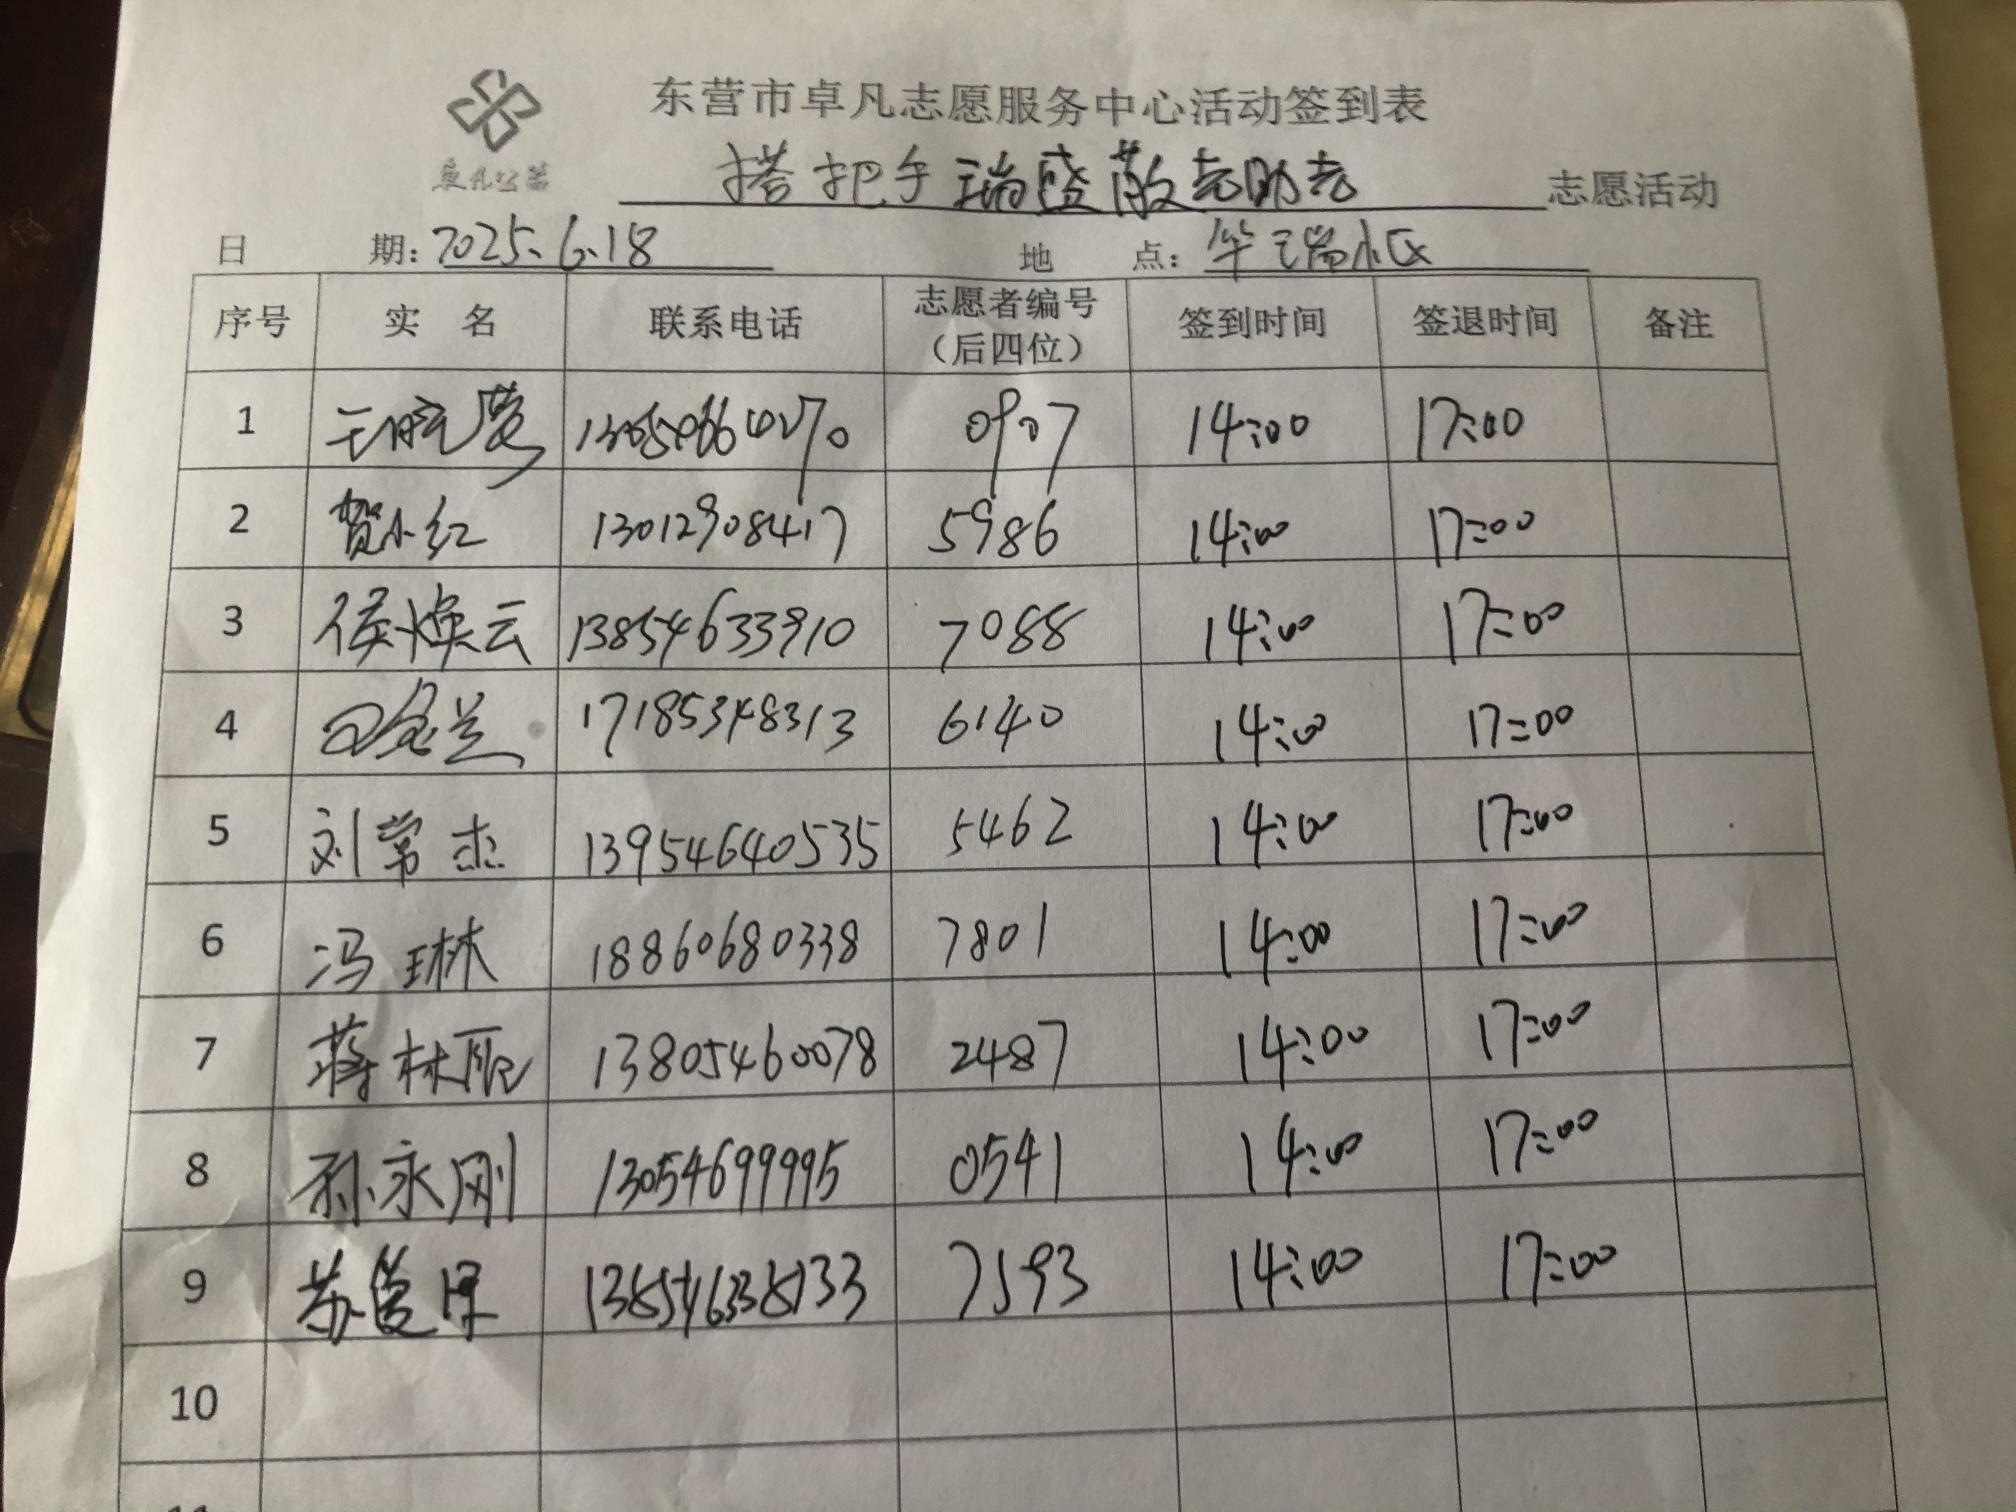 东营市卓凡志愿服务中心活动签到表
卓凡公益
搭把手瑞盛敬老助老 志愿活动
日 期: 2025.6.18 地 点: 华瑞小区
序号 实 名 联系电话 志愿者编号（后四位） 签到时间 签退时间 备注
1 0907 14:00 17:00
2 贺小红 13012908417 5986 14:00 17:00
3 侯焕云 13854633910 7088 14:00 17:00
4 17185348313 6140 14:00 17:00
5 刘常杰 13954640535 5462 14:00 17:00
6 冯琳 18860680338 7801 14:00 17:00
7 蒋林丽 13805460078 2487 14:00 17:00
8 孙永刚 13054699995 0541 14:00 17:00
9 13854638133 7593 14:00 17:00
10
11